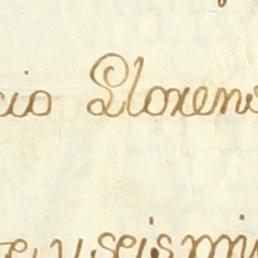 cio Llorens
te, y seis mi